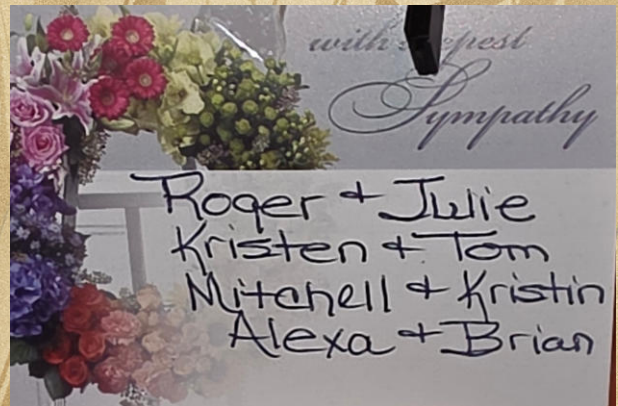 with deepest
Sympathy
Roger + Julie
Kristen + Tom
Mitchell + Kristin
Alexa + Brian